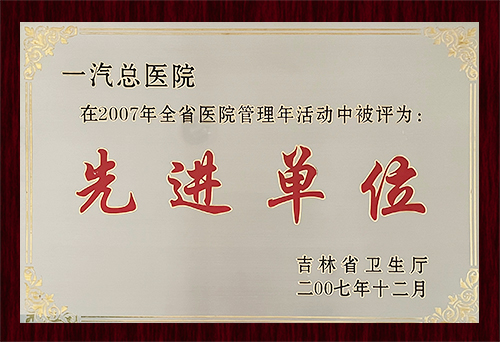 一汽总医院
在2007年全省医院管理年活动中被评为：
先进单位
吉林省卫生厅
二00七年十二月